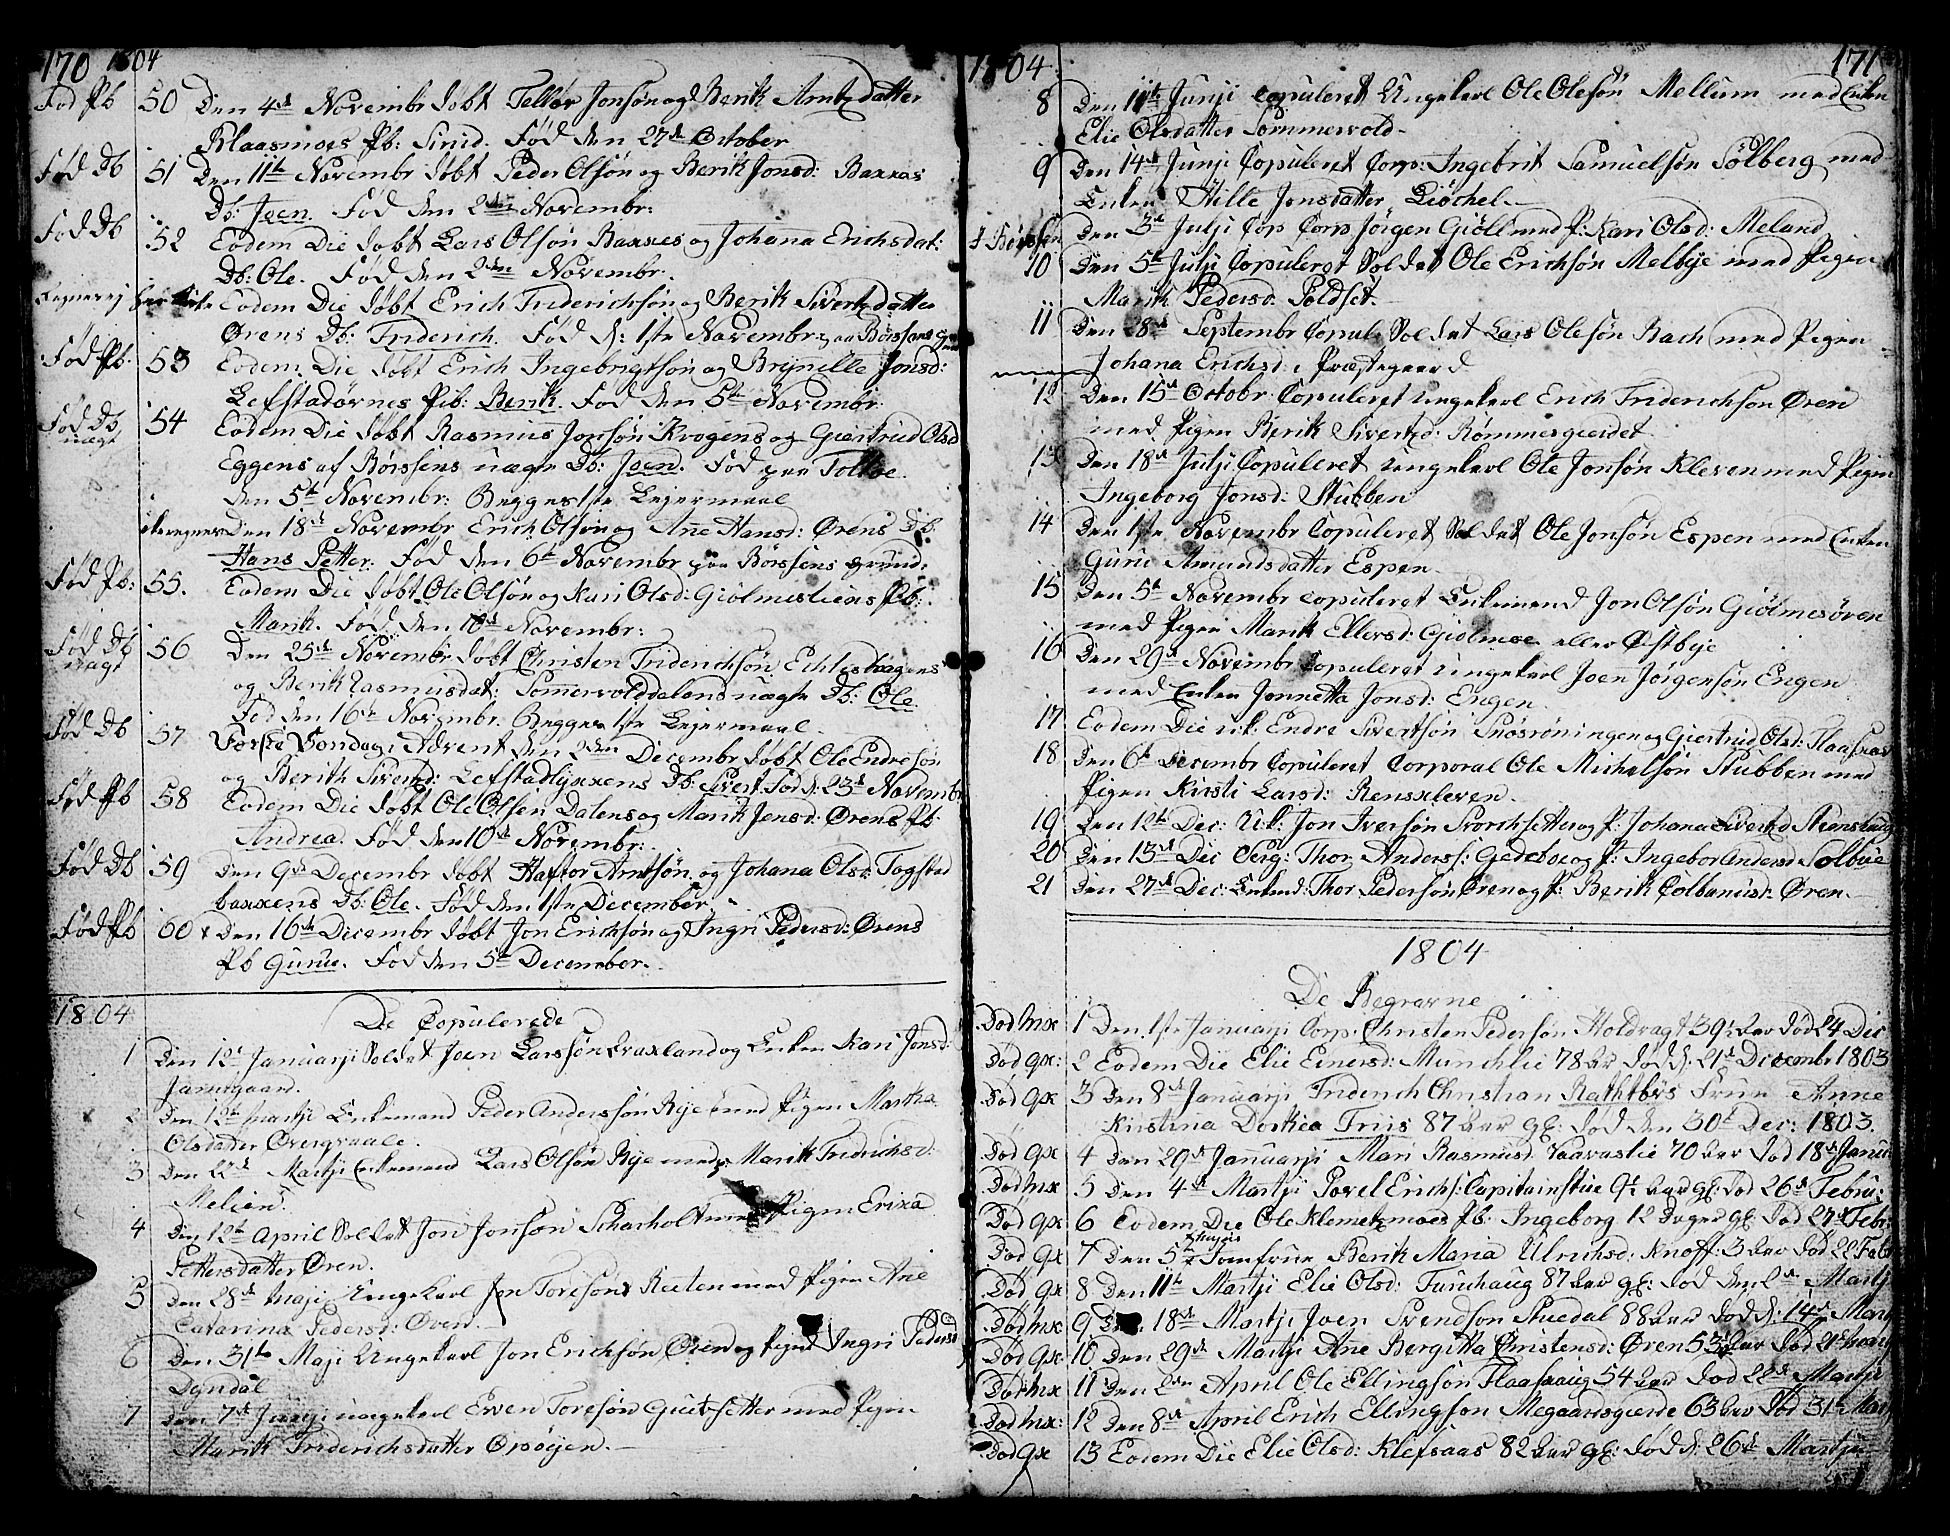 170 1804
Fød Pb 50 Den 4de Novembr døbt Tellør Jonsøn og Berit Arntzdatter
Klaasmoes Pb: Sirid. Fød den 27de October
Fød Db 51 Den 11te Novembr døbt Peder Olsøn og Berit Jonsd: Baxxas
Db: Joen. Fød den 2den Novembr:
Fød Db 52 Eodem Die døbt Lars Olsøn Baxxes og Johana Erichsdat:
Db: Ole. Fød den 2den Novembr.
Eodem Die døbt Erich Friderichsøn og Berit Sivertzdatter
Ørens Db: Friderich. Fød d: 1ste Novembr: paa Børssens
Fød Pb. 53 Eodem Die døbt Erich Ingebrigtsøn og Brynille Jonsd:
Lefstadørnes Pib: Berit. Fød den 5te Novembr
Fød Db uægt 54 Eodem Die døbt Rasmus Jonsøn Krogens og Giertrud Olsd
Eggens af Børssens uægte Db: Joen. Fød paa Toltøe
den 5te Novembr: Begges 1ste Lejermaal
Den 18de Novembr Erich Olsøn og Ane Hansd: Ørens Db.
Hans Petter. Fød den 6te Novembr paa Børssens grund.
Fød Pb: 55. Eodem Die døbt Ole Olsøn og Kari Olsd: Giølmesliens Pb:
Marit. Fød den 10de Novembr:
Fød Db uægt 56 Den 25de Novembr døbt Christen Friderichsøn Echleshagens
og Berit Rasmusdat: Sommervolddalens uægte Db: Ole
Fød den 16de Novembr. Begges 1ste Lejermaal.
Fød Db 57 Første Søndag i Advent den 2den Decembr døbt Ole Endresøn
og Berith Sivertzd: Lefstadlyxxens Db: Sivert. Fød d: 23de Novembr
Fød Pb 58 Eodem Die døbt Ole Olsen Dalens og Marit Jensd: Ørens Pb:
Andrea. Fød den 10de Novembr:
Fød Db 59 Den 9de Decembr døbt Haftor Arntsøn og Johana Olsd: Togstad
baxxens Db: Ole. Fød den 1ste December.
Fød Pb 60 Den 16de Decembr døbt Jon Erichsøn og Ingri Pedersd: Ørens
Pb Gurue. Fød den 5te December.
1804 De Copulerede
1 Den 12te Januarji Soldat Joen Larssøn Qvaxland og Enken Kari Jonsd:
Jamtgaard.
2 Den 12te Martji Enkemand Peder Anderssøn Rye med Pigen Martha
Olsdatter Overgraale.
3 Den 22de Martji Enkemand Lars Olsøn Rye med p: Marit Fridrichsd:
Melien.
4 Den 12te April Soldat Jon Jonsøn Scharholt med Pigen Erixa
Pettersdatter Øren.
5 Den 28de Maji Ungekarl Jon Toresøn Reeten med Pigen Ane
Catarina Pedersd: Øren.
6 Den 31te Maji Ungekarl Jon Erichsøn Øren og Pigen Ingri Pedersd
Dyndal
7 Den 7de Junji ungekarl Even Toresøn Guetsetter med Pigen
Marit Friderichsdatter Opøyen.
1804 171
8 Den 11te Junji copuleret Ungekarl Ole Olesøn Mellum med Enken
Elie Olsdatter Sommervold.
9 Den 14de Junji Copuleret Corp: Ingebrit Samuelsøn Sølberg med
Enken Hille Jonsdatter Liøchel.
I Børssen Den 3de Julji Cop Corp Jørgen Giøll med P: Kari Olsd: Meland
10 Den 5te Julji Copuleret Soldat Ole Erichsøn Melbye med Pigen
Marit Pedersd: Soldset.
11 Den 28de Septembr Copul: Soldat Lars Olesøn Bach med Pigen
Johana Erichsd: i Præstegaard
12 Den 15de Octobr Copuleret ungekarl Erich Friderichsøn Øren
med Pigen Berit Sivertzd: Rømmesgierdet
13 Den 18de Julji Copuleret ungekarl Ole Jonsøn Kleven med Pigen
Ingeborg Jonsd: Stubben
14 Den 1ste Novembr Copuleret Soldat Ole Jonsøn Espen med Enken
Guru Amundsdatter Espen.
15 Den 5te Novembr copuleret Enkemand Jon Olsøn Giølmesøren
med Pigen Marit Ellersd: Giolmoe eller Østbye
16 Den 29de Novembr Copuleret ungekarl Joen Jørgensøn Engen
med Enken Jonnetta Jonsd: Engen.
17 Eodem Die u:k: Endre Sivertsøn Snøsrøningen og Giertrud Olsd:
18 Den 6te Decembr Copuleret Corporal Ole Michelsøn Stubben med
Pigen Kirsti Larsd: Rensxleven.
19 Den 12te Dec: U:k: Jon Iversøn Svorchsetter og P: Johana Sivertzd
20 Den 13de Dec Serg: Thor Anderss: Giedeboe og P: Ingebor Andersd Solbue
21 Den 27de Dec: Enkemd: Thor Pedersøn Øren og P: Berit Colbanusd: Øren.
1804
De Begravne
Død mx 1 Den 1ste Januarji Corp: Christen Pedersøn Holdragt 39 2 aar død 24 Dec
Død qx: 2 Eodem Die Elie Einersd: Munchlie 78 aar død d: 21de Decembr 1803
Død qx 3 Den 8de Januarji Friderich Christian Rathkbys Frue Anne
Kirstina Dorthea Friis 87 aar gl: død den 30te Dec: 1803.
Død qx 4 Den 29de Januarji Mari Rasmusd Vaavaslie 70 aar død 18de Janu:
Død mx 5 Den 4de Martji Povel Erichs: Capitainstue 9 1/2 aar gl: død 26de Febru:
Død qx 6 Eodem Die Ole Klemetzmoes Pb: Ingeborg 12 Dager gl: død 27de Febr
Død qx 7 Den 5te Jomfrue Berit Maria Ulrichsd: Knoff: 3 aar død 22 Febr
Død qx 8 Den 11te Martji Elie Olsd: Furuhaug 87 aar gl: død den 2de Martji
Død mx 9 Den 18de Martji Joen Svendsøn Stuedal 88 aar død d: 14de Martji
Død qx 10 Den 29de Martji Ane Bergitta Christensd: Øren 53 aar død 21 Martji
Død mx 11 Den 2den April Ole Ellingsøn Flaaxaug 54 aar død 22de Martji
Død mx: 12 Den 8de April Erich Ellingsøn Megaardsgierde 63 aar død 31te Martj
Død qx 13 Eodem Die Elie Olsd: Klefsaas 82 aar gl: død d: 26de Martji